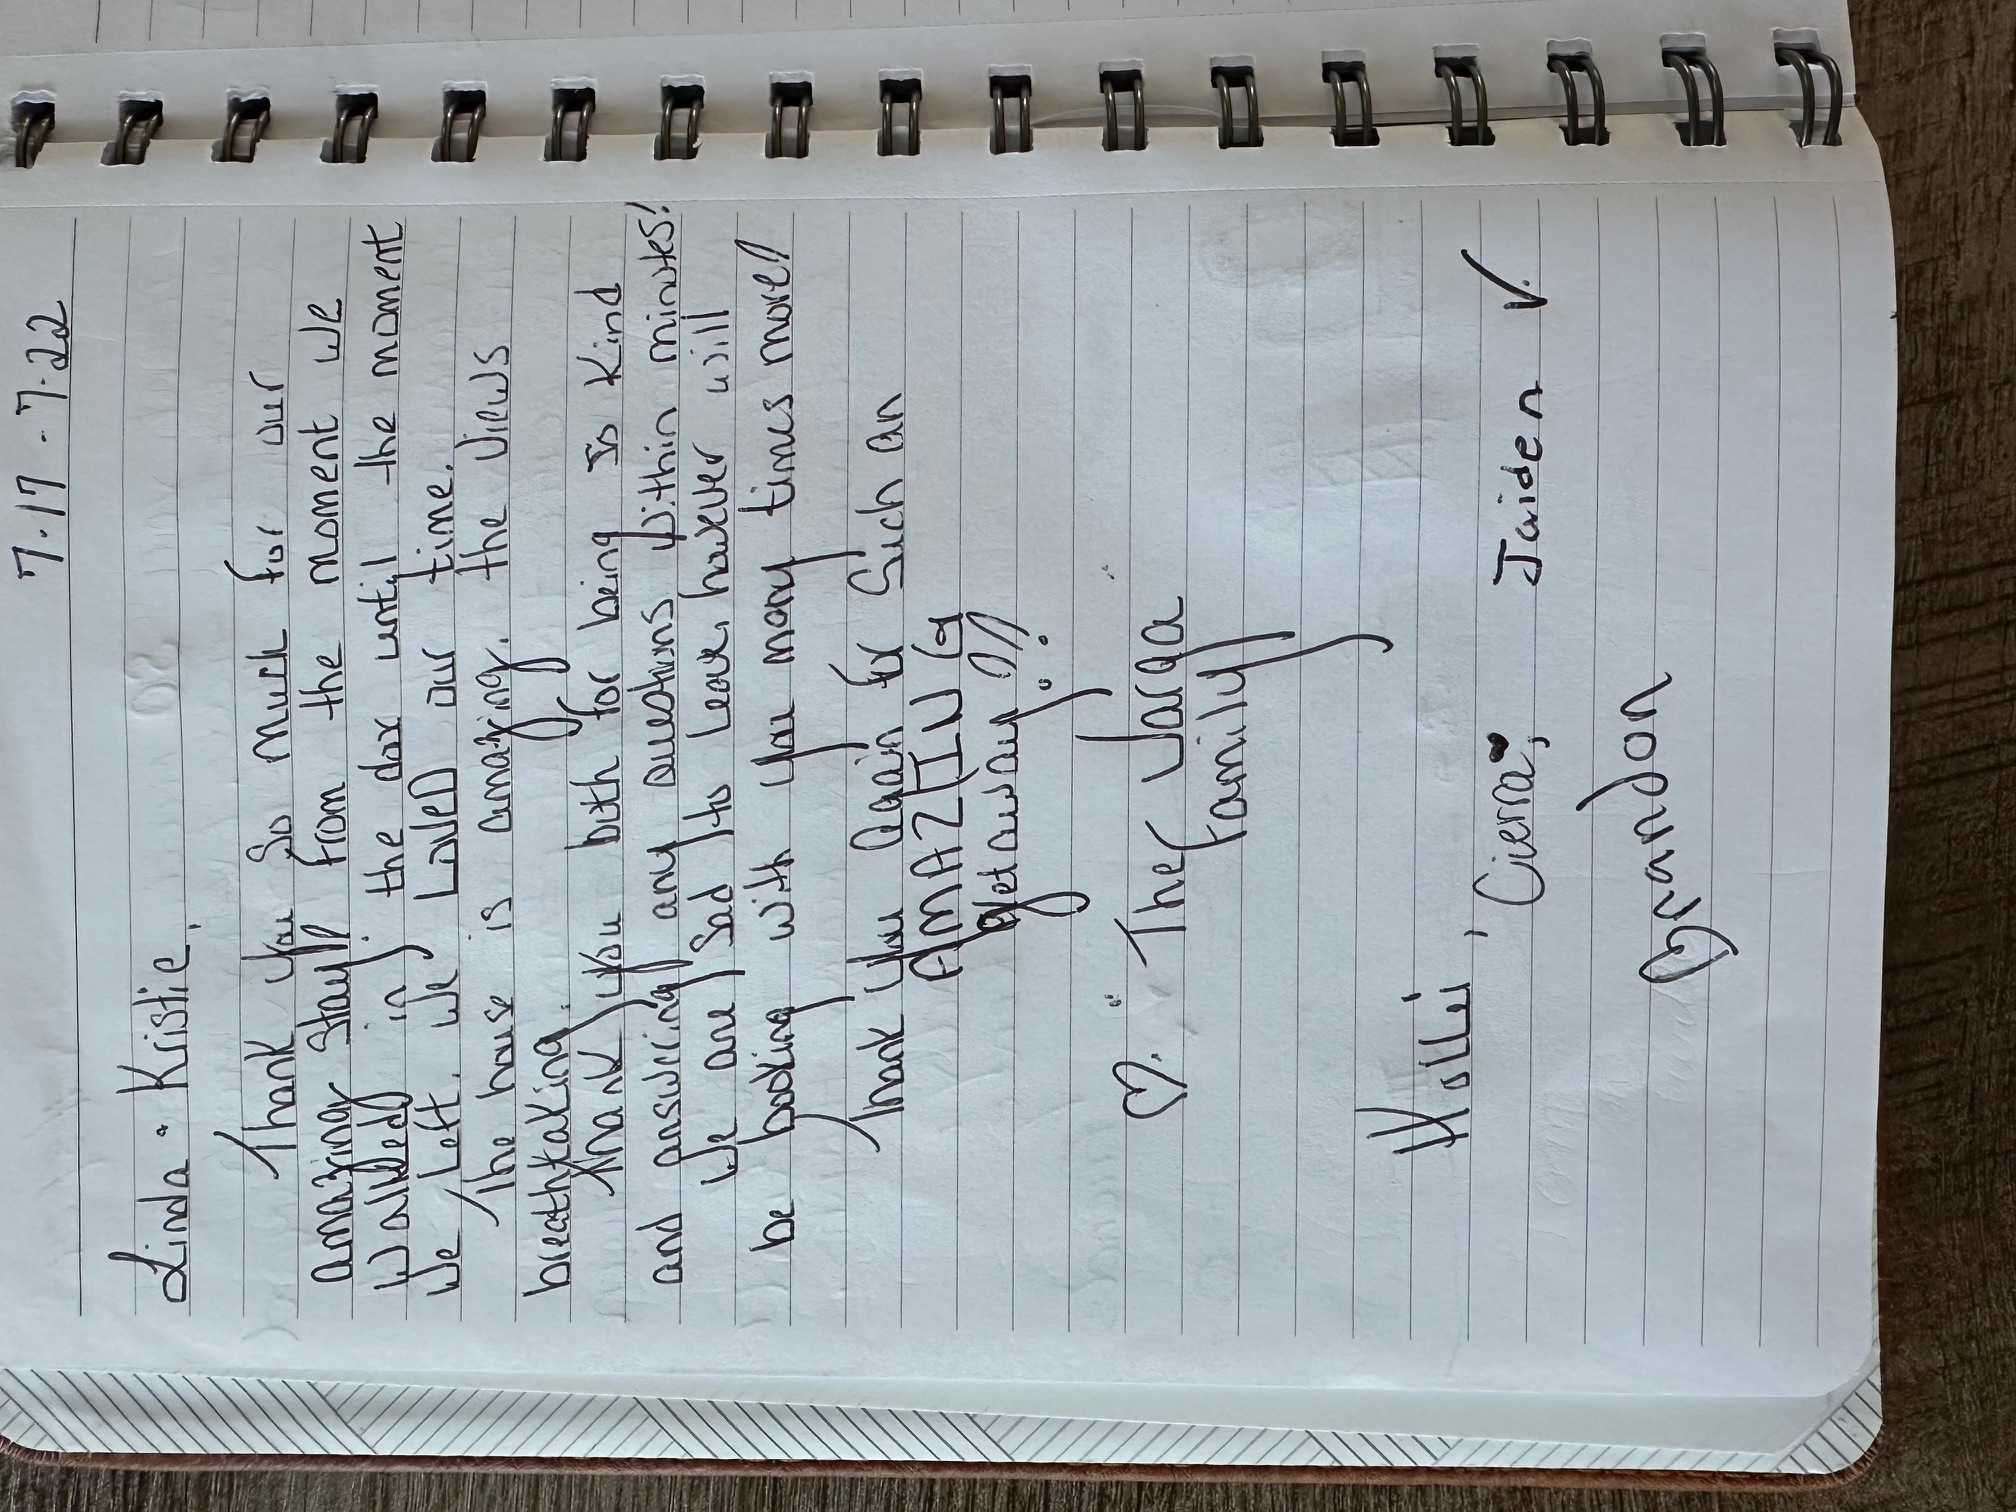 7.17 - 7.22
Linda + Kristie,
Thank you so much for our
amazing stay!! From the moment we
walked in the door until the moment
we left. We LOVED our time.
The house is amazing. the views
breathtaking.
Thank you both for being so kind
and answering any questions within minutes!
We are sad to leave, however will
be booking with you many times more!
Thank you again for such an
AMAZING
getaway!!
♡. "The Varga"
Family
Holli,
Cierra♥, Jaiden V.
Brandon